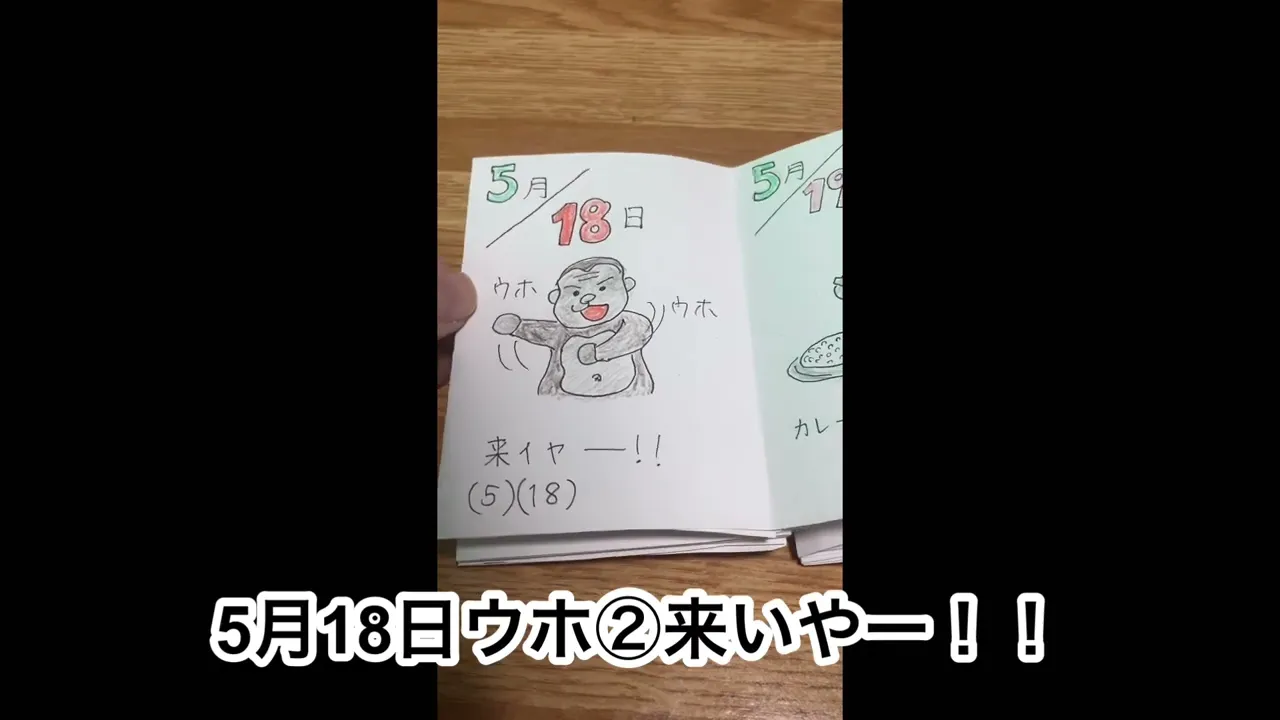 5月
18日
ウホ
ウホ
来イヤー!!
(5)(18)
5月
19
カレー
5月18日ウホ②来いやー!!